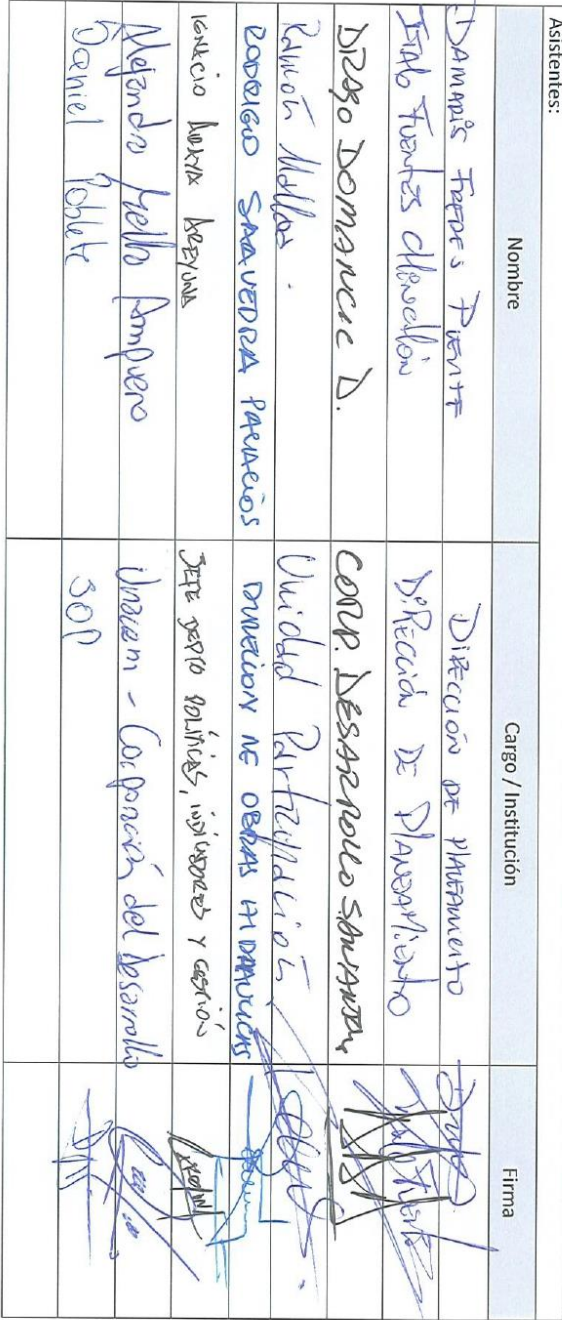 Asistentes:
Nombre Cargo / Institución Firma
DAMARIS FREDES PUENTE DIRECCIÓN DE PLANEAMIENTO
Italo Fuentes DIRECCIÓN DE PLANEAMIENTO Italo Fuentes
DRAGO DOMANCIC D. CORP. DESARROLLO
Ramón Unidad Participación
RODRIGO SAAVEDRA PALACIOS DIRECCION DE OBRAS HIDRAULICAS
IGNACIO ARAYA AREYUNA JEFE DEPTO POLÍTICAS, INDICADORES Y GESTIÓN
Alejandro Mella Ampuero Corporación del Desarrollo
Daniel Poblete SOP